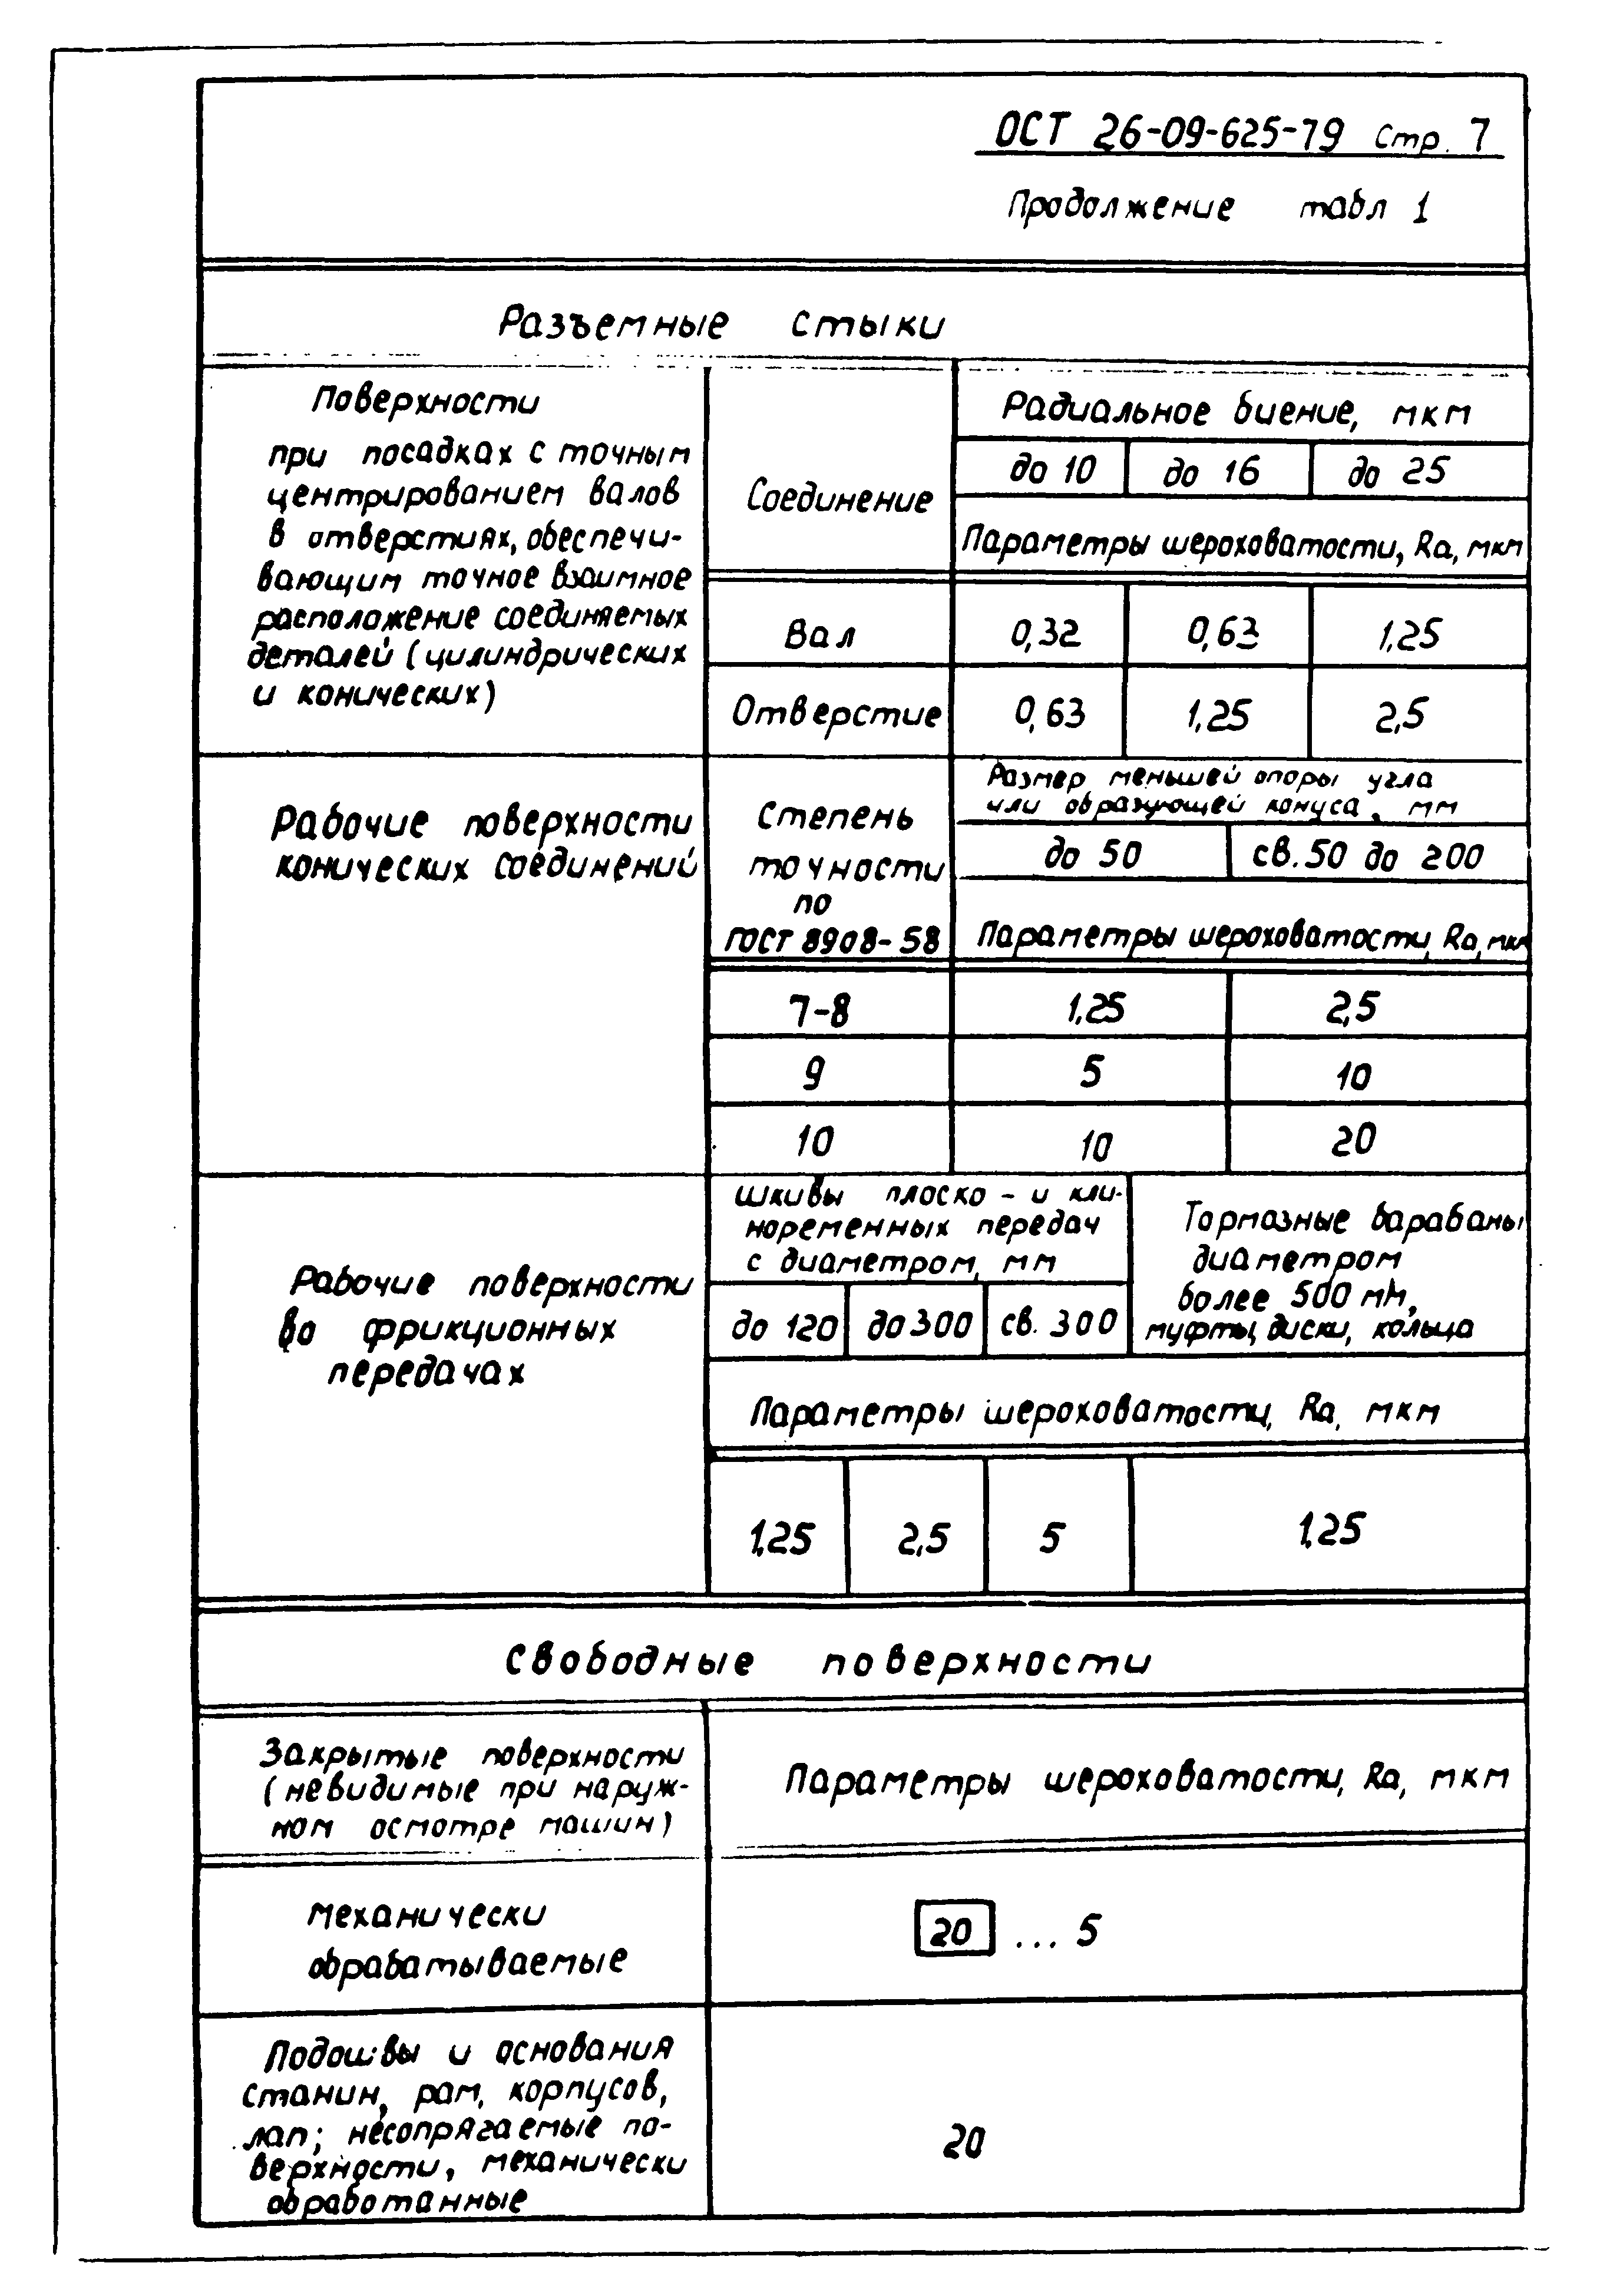 ОСТ 26-09-625-79 Стр. 7
Продолжение табл 1
Разъемные стыки
Поверхности
при посадках с точным
центрированием валов
в отверстиях, обеспечи-
вающим точное взаимное
расположение соединяемых
деталей (цилиндрических
и конических)
Соединение
Радиальное биение, мкм
до 10 до 16 до 25
Параметры шероховатости, Ra, мкм
Вал 0,32 0,63 1,25
Отверстие 0,63 1,25 2,5
Рабочие поверхности
конических соединений
Степень
точности
по
ГОСТ 8908-58
Размер меньшей опоры угла
или образующей конуса, мм
до 50 св. 50 до 200
Параметры шероховатости, Ra, мкм
7-8 1,25 2,5
9 5 10
10 10 20
Рабочие поверхности
во фрикционных
передачах
шкивы плоско - и кли-
ноременных передач
с диаметром, мм
до 120 до 300 св. 300
Тормозные барабаны
диаметром
более 500 мм,
муфты, диски, кольца
Параметры шероховатости, Ra, мкм
1,25 2,5 5 1,25
Свободные поверхности
Закрытые поверхности
(невидимые при наруж-
ном осмотре машин)
Параметры шероховатости, Ra, мкм
механически
обрабатываемые
20 ... 5
Подошвы и основания
станин, рам, корпусов,
лап; несопрягаемые по-
верхности, механически
обработанные
20